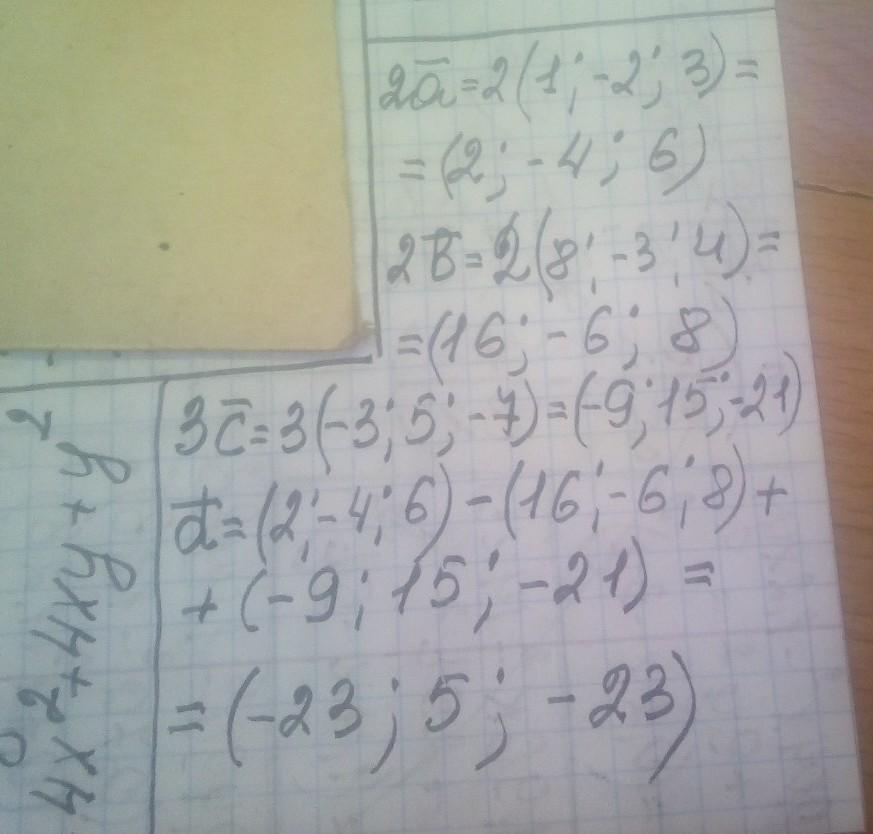 2a̅=2(1;-2;3)=
=(2;-4;6)
2b̅=2(8;-3;4)=
=(16;-6;8)
3c̅=3(-3;5;-7)=(-9;15;-21)
d̅=(2;-4;6)-(16;-6;8)+
+(-9;15;-21)=
=(-23;5;-23)
4x²+4xy+y²